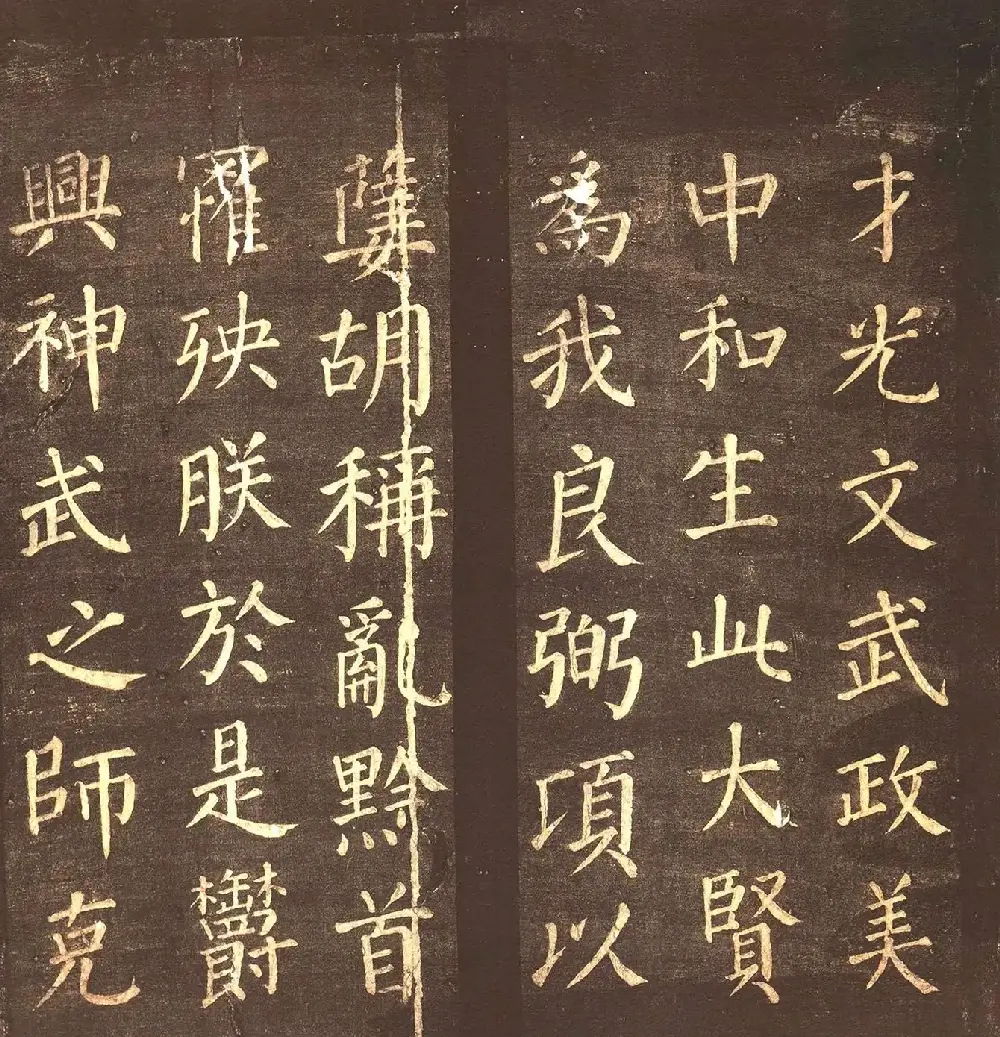 才光文武政美
中和生此大賢
為我良弼頃以
孽胡稱亂黔首
罹殃朕於是鬱
興神武之師克